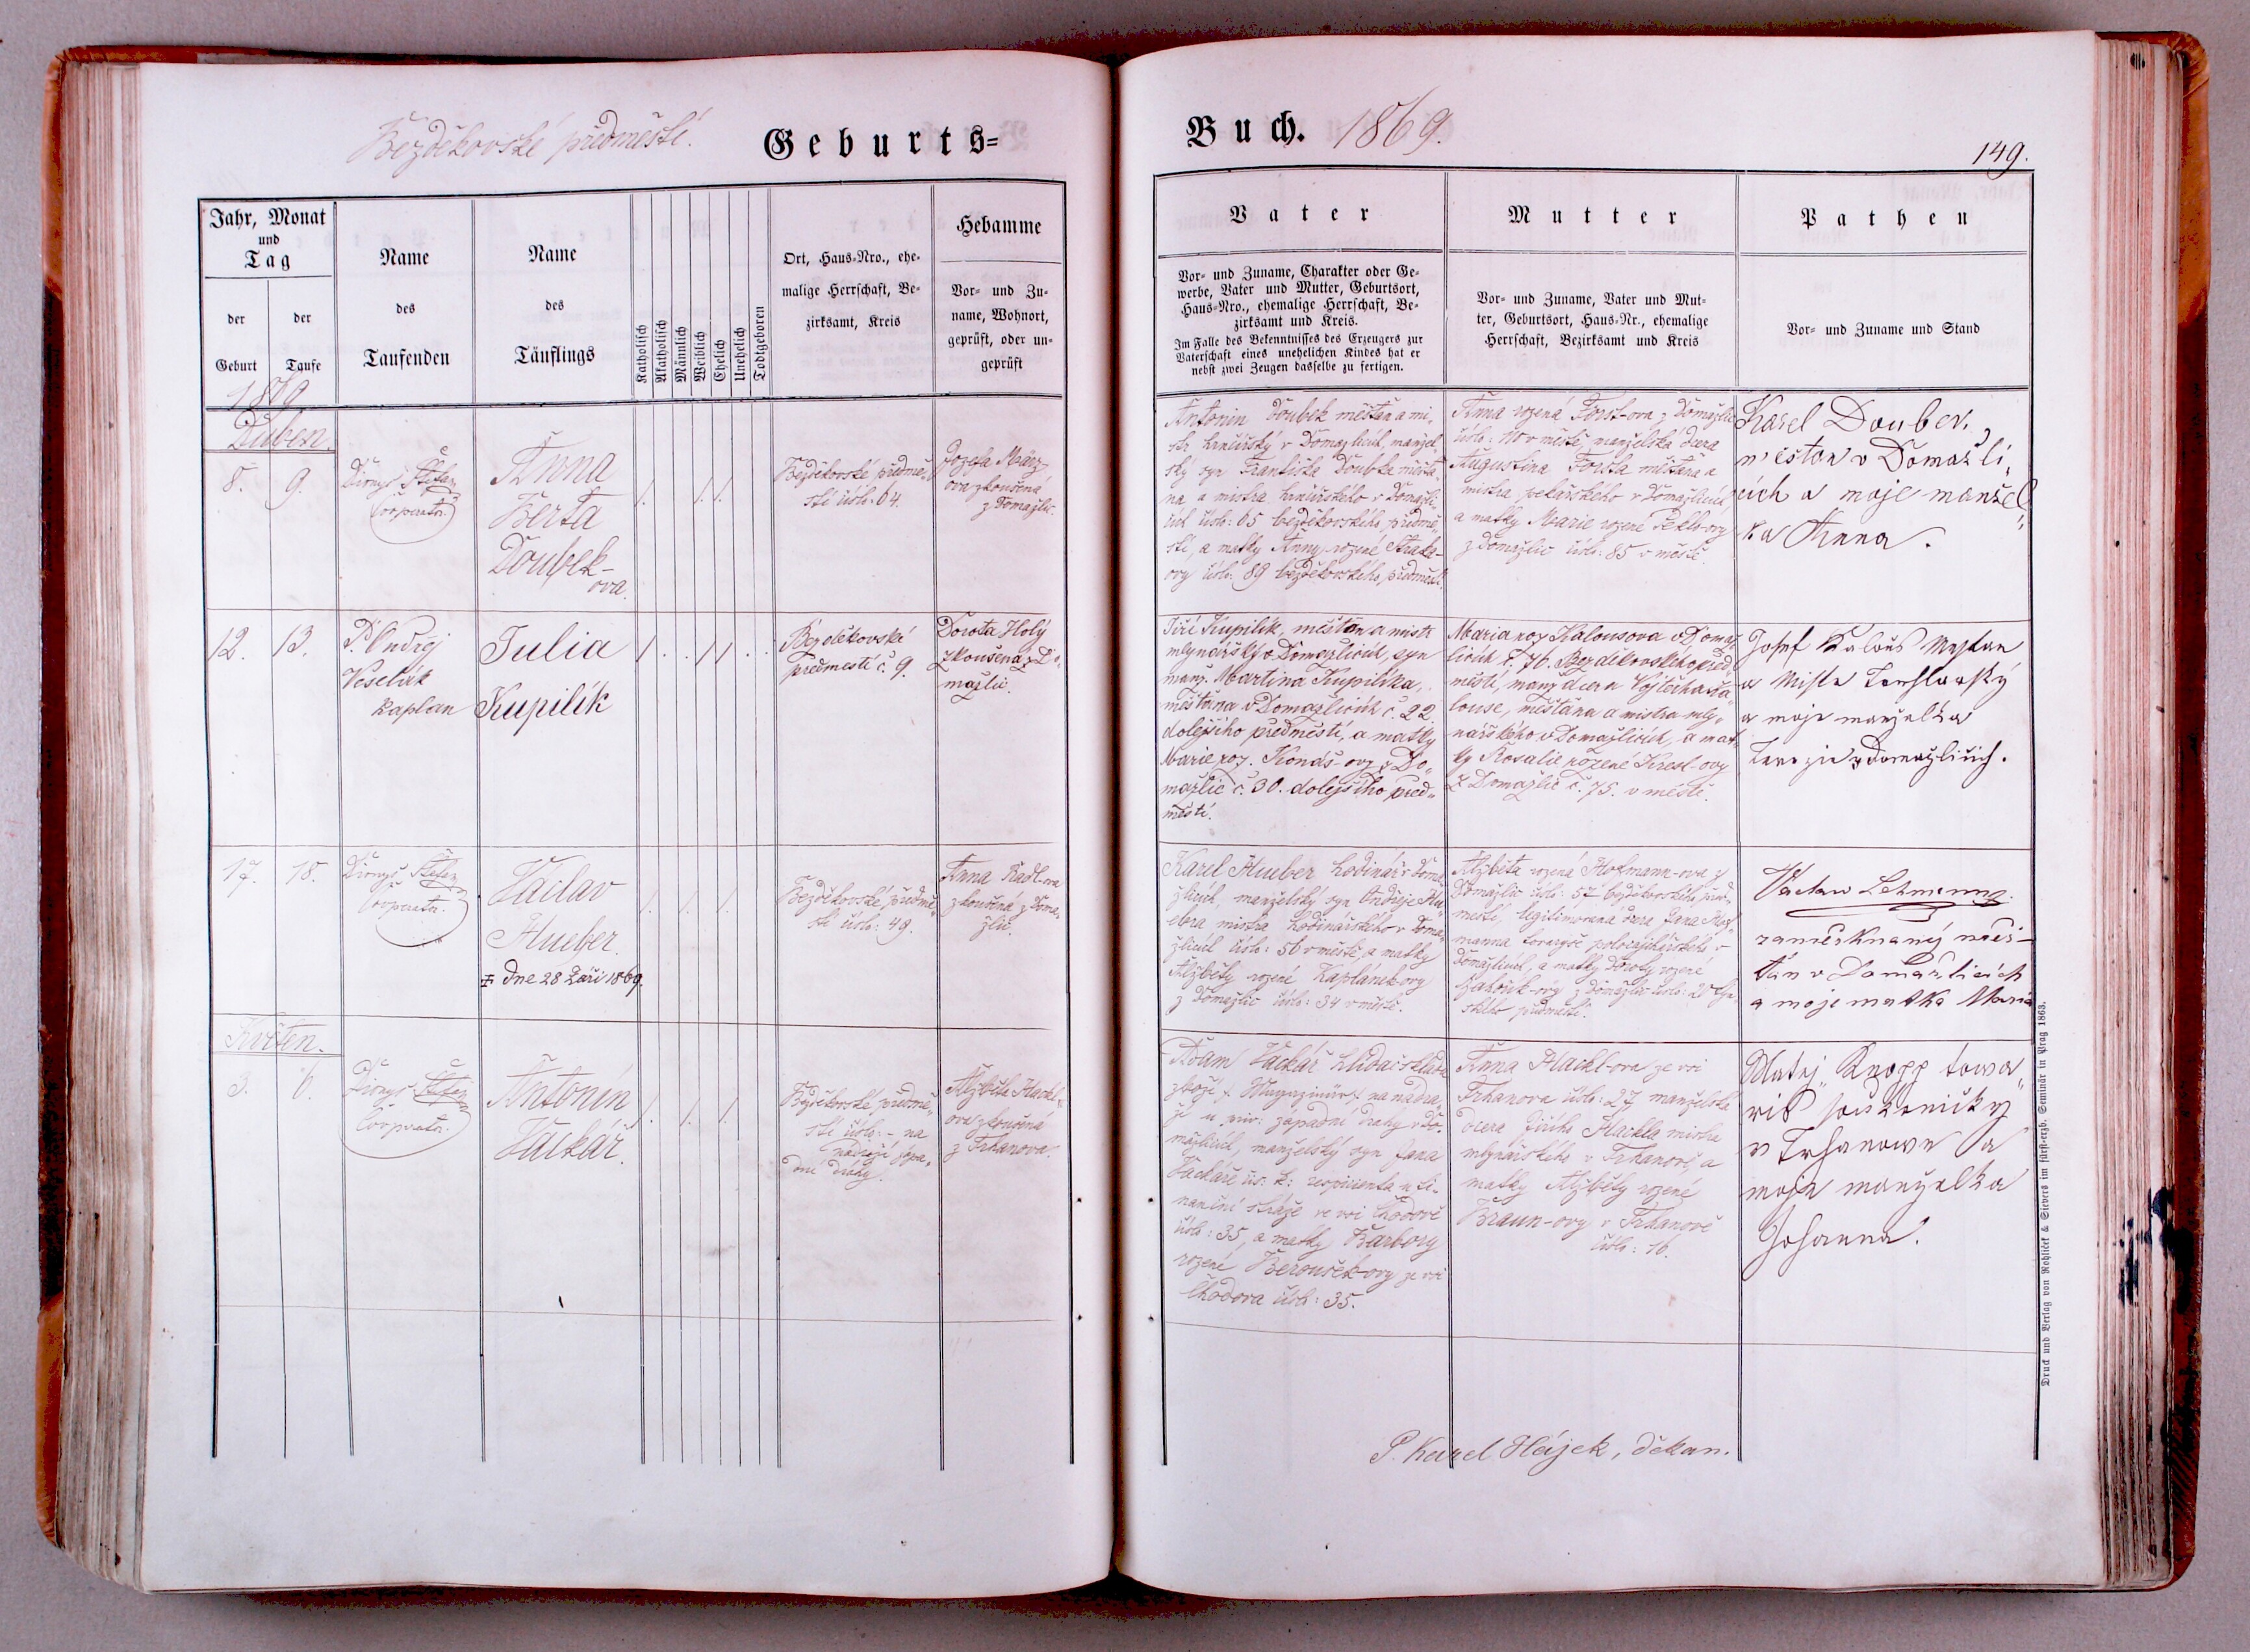 Bezděkovské předměstí.
Geburts=
Buch. 1869.
149.
Jahr, Monat
und
Tag
der
Geburt
der
Taufe
Name
des
Taufenden
Name
des
Täuflings
Katholisch
Akatholisch
Männlich
Weiblich
Ehelich
Unehelich
Todtgeboren
Ort, Haus-Nro., ehe-
malige Herrschaft, Be-
zirksamt, Kreis
Hebamme
Vor- und Zu-
name, Wohnort,
geprüft, oder un-
geprüft
Vater
Vor- und Zuname, Charakter oder Ge-
werbe, Vater und Mutter, Geburtsort,
Haus-Nro., ehemalige Herrschaft, Be-
zirksamt und Kreis.
Im Falle des Bekenntnisses des Erzeugers zur
Vaterschaft eines unehelichen Kindes hat er
nebst zwei Zeugen dasselbe zu fertigen.
Mutter
Vor- und Zuname, Vater und Mut-
ter, Geburtsort, Haus-Nr., ehemalige
Herrschaft, Bezirksamt und Kreis
Pathen
Vor- und Zuname und Stand
1869
Duben.
8.
9.
Dionys Štefan
Cooperator.
Anna
Berta
Doubek-
ova.
Bezděkovské předmě-
stí čislo: 64.
Josefa März-
ova zkoušená
z Domažlic.
Antonín Doubek měštan a mi-
str hrnčířský v Domažlicích, manžel-
ský syn Františka Doubka měšťa-
na a mistra hrnčířského v Domažli-
cích čislo: 65 bezděkovského předmě-
stí, a matky Anny rozené Straka-
ovy čislo: 89 bezděkovského předměstí.
Anna rozená Forst-ova z Domažlic
čislo: 110 v městě manželská dcera
Augustina Forsta měštana a
mistra pekařského v Domažlicích,
a matky Marie rozené Pekl-ovy
z Domažlic čislo: 85 v městě.
Karel Doubek,
městan v Domažli,
cích a moje manžel,,
ka Anna.
12.
13.
P. Ondrej
Veselák
kaplan
Julia
Kupilík
Bezděkovské
předmestí č. 9.
Dorota Holý
zkoušena z Do-
mažlic.
Jiří Kupilík, měštan a mistr
mlynářský v Domažlicích, syn
manž. Martina Kupilíka,
měštana v Domažlicích č. 22.
dolejšího předměstí, a matky
Marie roz. Konds-ovy z Do-
mažlic č. 30. dolejšího před-
městí.
Maria roz. Kalousova v Domaž-
licích č. 76. Bezděkovského před-
městí, manž dcera Vojtěcha Ka-
louse, měštana a mistra mly-
nářského v Domažlicích, a mat-
ky Rosalie rozené Kresl-ovy
z Domažlic č. 75. v městě.
Josef Kalouš Mestan
a Mistr
a moje manzelka
Terezie z Domažlicich.
17.
18.
Dionys Štefan
Cooperator.
Václav
Hueber.
‡ dne 28 Září 1869.
Bezděkovské předmě-
stí čislo: 49.
Anna Radl-ova
zkoušená z Doma-
žlic.
Karel Hueber hodinář v Doma-
žlicích, manželský syn Ondřeje Hu-
ebra mistra hodinářského v Doma-
žlicích čislo: 56 v městě, a matky
Alžběty rozené Kaplánek-ovy
z Domažlic čislo: 34 v městě.
Alžběta rozená Hofmann-ova z
Domažlic čislo: 57 bezděkovského před-
městí, legitimovaná dcera Jana Hof-
manna tovaryše v
Domažlicích, a matky Doroty rozené
z Domažlic čislo: 20
ského předměstí.
Václaw Lehmann
zaměsknaný měs-
tan v Domažlicích
a moje matka Maria
Květen.
3.
6.
Dionys Štefan
Cooperator.
Antonín
Vackář.
Bezděkovské předmě-
stí čislo: -, na
nádraží zápa-
dní dráhy.
Alžběta Hackl-
ova zkoušená
z Trhanova.
Adam Vackář hlídač skladu
zboží na nádra-
ží c. priv. západní dráhy v Do-
mažlicích, manželský syn Jana
Vackáře cís. k: respicienta u fi-
nanční stráže ve vsi Chodově
čislo: 35, a matky Barbory
rozené Beroušek-ovy ze vsi
Chodova čislo: 35.
Anna Hackl-ova ze vsi
Trhanova čislo: 27 manželská
dcera Jiřího Hackla mistra
mlynářského v Trhanově, a
matky Alžběty rozené
Braun-ovy v Trhanově
čislo: 16.
Matěj Knopp towa-
riš soukenický
v Trhanowě a
moje manželka
Johanna.
P. Karel Hájek, děkan.
Druck und Verlag von Rohliček & Sievers im fürst-erzb. Seminär in Prag 1863.